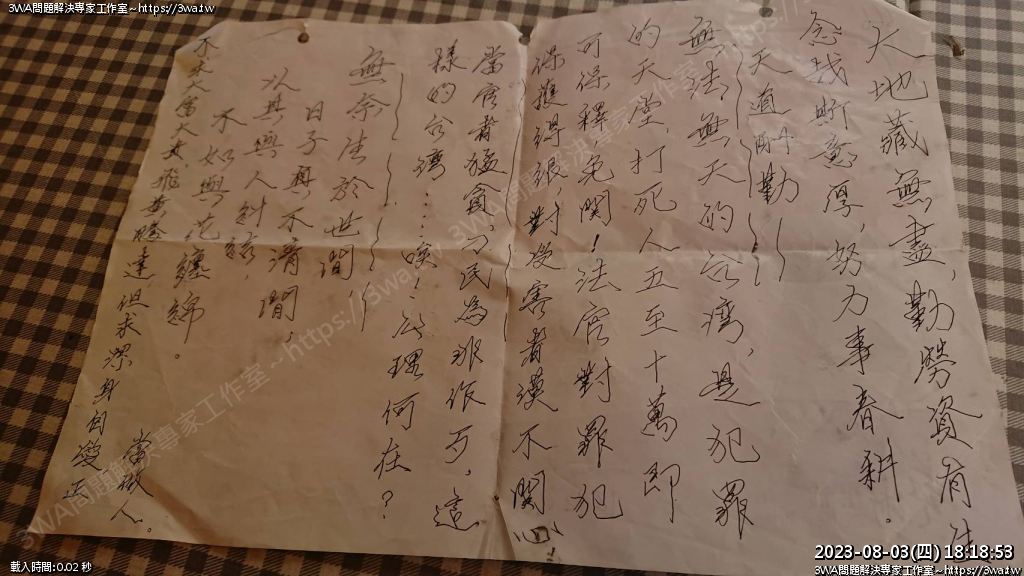 3WA問題解決專家工作室～https://3wa.tw
天地藏無盡，勤勞資有生
念哉斯意厚，努力事春耕。
天道酬勤
無法無天的台灣，是犯罪
的天堂，打死人五至十萬即
可保釋，免關！法官對罪犯
保護得很，對受害者漠不關心！
當官者猛貪，刁民為非作歹，這
樣的台灣……唉！公理何在？
無奈生於世間
日子真不清閒，
以其與人糾纏，
不如與花纏綿。
不求大富大女，飛黃騰達但求潔身自愛正
當做人。
載入時間：0.02 秒
2023-08-03(四) 18:18:53
3WA問題解決專家工作室～https://3wa.tw